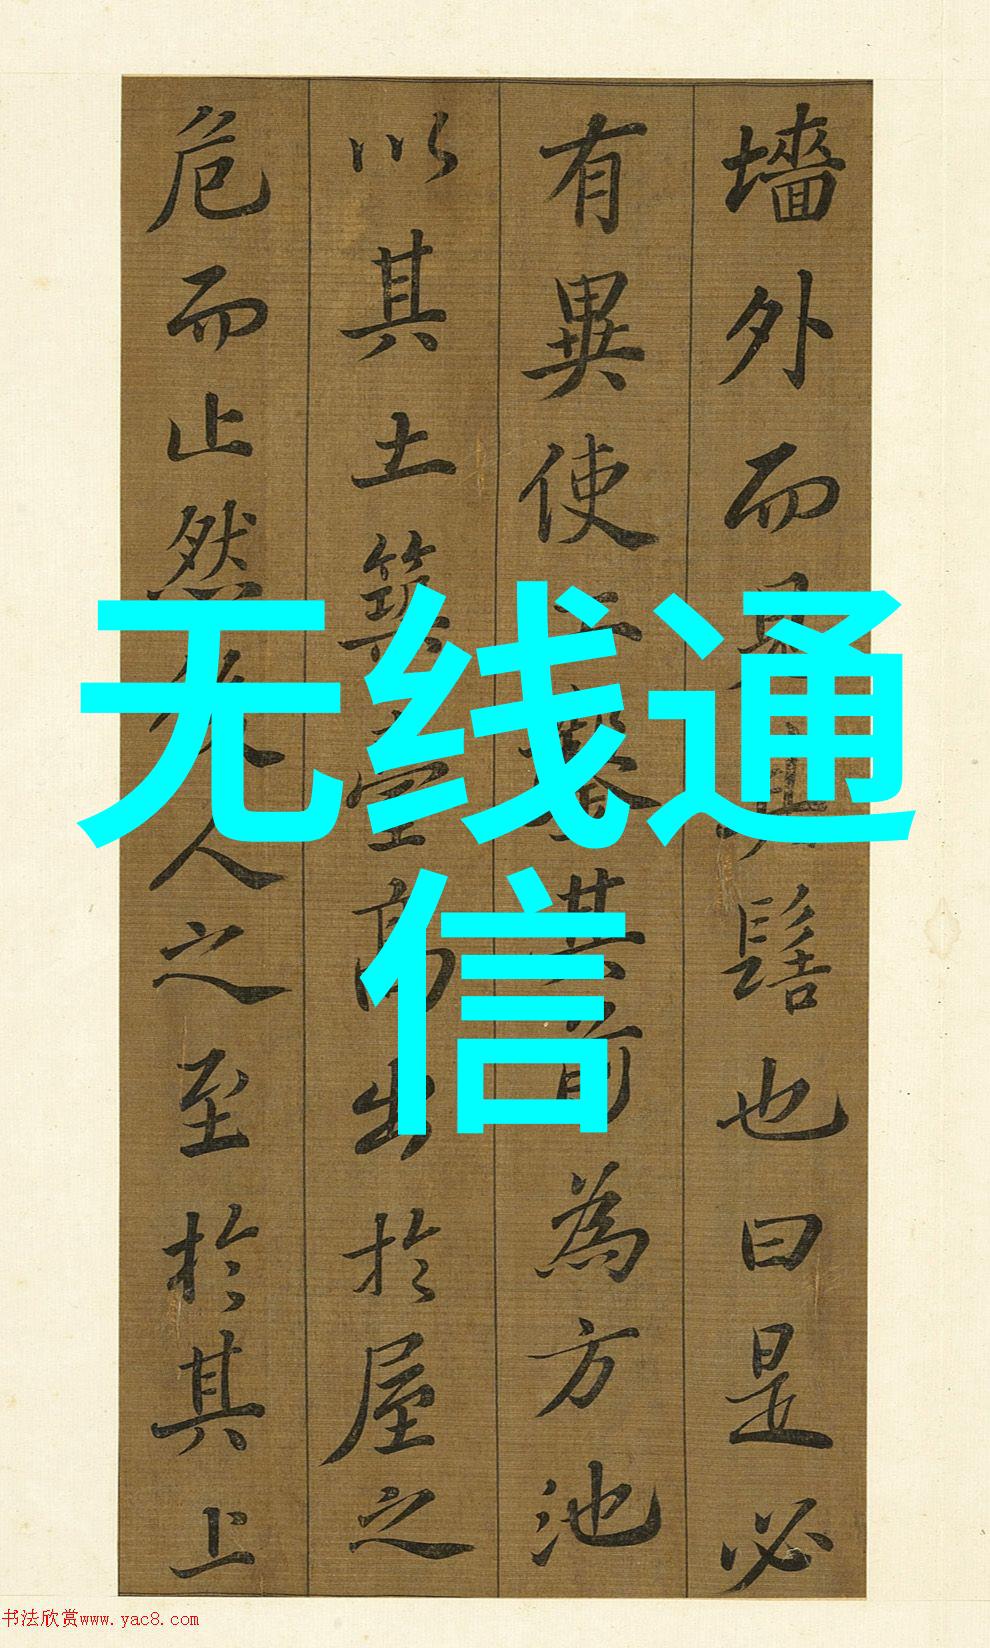 墻外而見其髻也曰是必
有異使工鑿其前為方池
以其土築臺高出於屋之
危而止然後人之至於其上
无线通
信
书法欣赏www.yac8.com